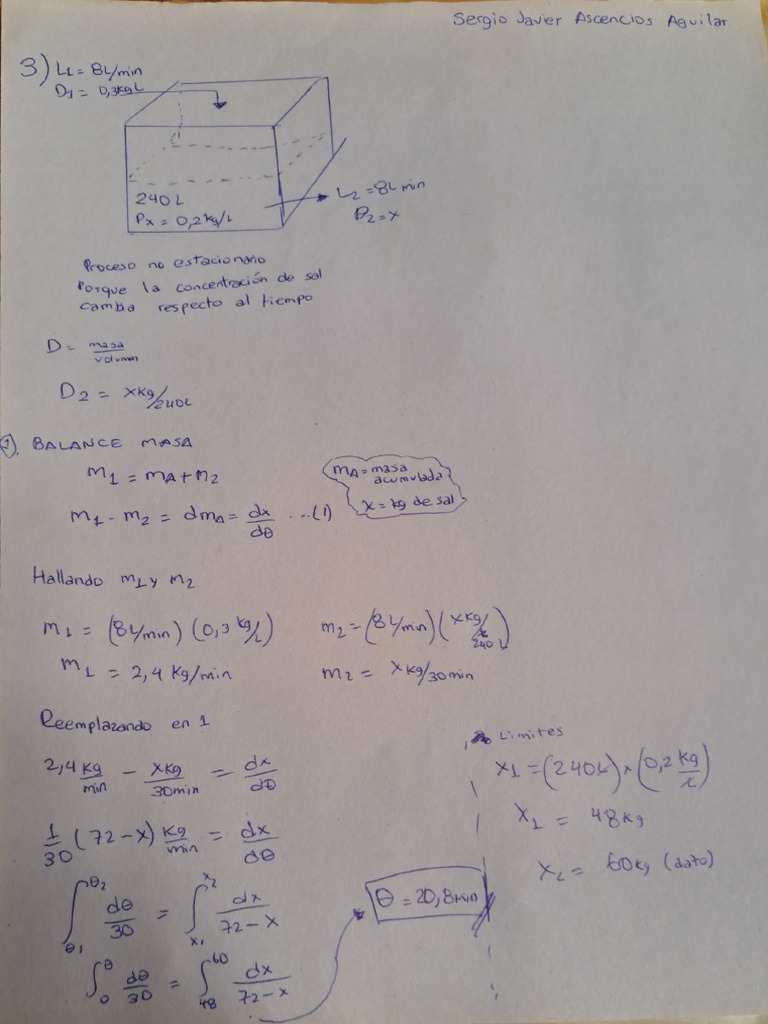 Sergio Javier Ascencios Aguilar
3) L1 = 8L/min
D1 = 0,3kgL
240L
Px = 0,2kg/L
L2 = 8L min
D2 = x
Proceso no estacionario
Porque la concentración de sal
cambia respecto al tiempo
D = masa/volumen
D2 = xkg/240L
1). BALANCE MASA
m1 = mA + m2
m1 - m2 = dmA = dx/dθ ...(1)
mA = masa
acumulada
x = kg de sal
Hallando m1 y m2
m1 = (8L/min) (0,3 kg/L)
m2 = (8L/min) (xkg/240L)
m1 = 2,4 Kg/min
m2 = xkg/30min
Reemplazando en 1
2,4 kg/min - xkg/30min = dx/dθ
1/30 (72 - x) kg/min = dx/dθ
∫θ1^θ2 dθ/30 = ∫x1^x2 dx/72 - x
∫0^θ dθ/30 = ∫48^60 dx/72 - x
θ = 20,8min
Limites
x1 = (240L) x (0,2 kg/L)
x1 = 48kg
x2 = 60kg (dato)